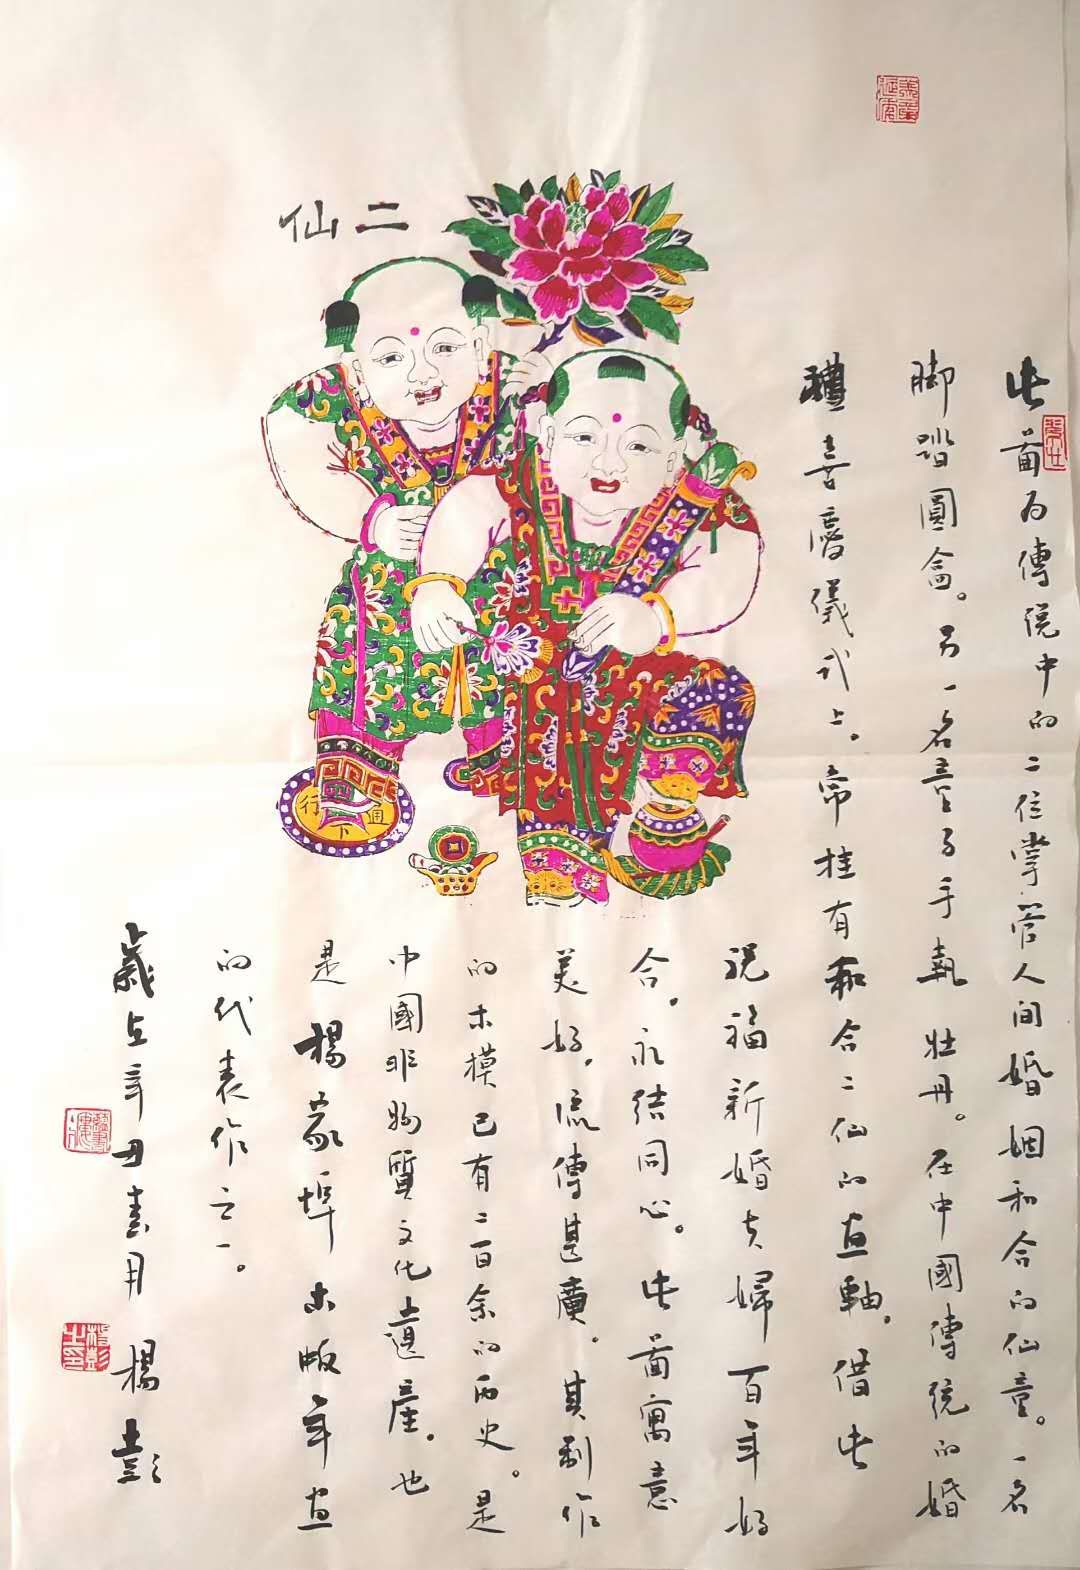 二仙
此啚为傳说中的二位掌管人间婚姻和合的仙童。一名
脚踏圓盒。另一名童子手執牡丹。在中國傳统的婚
禮喜慶儀式上。常挂有和合二仙的画軸。借此
祝福新婚夫婦百年好
合。永结同心。此啚寓意
美好，流傳甚廣。其制作
的木模已有二百余的历史。是
中國非物質文化遺産。也
是楊家埠木版年画
的代表作之一。
歲在辛丑春月 楊彭
楊彭之印